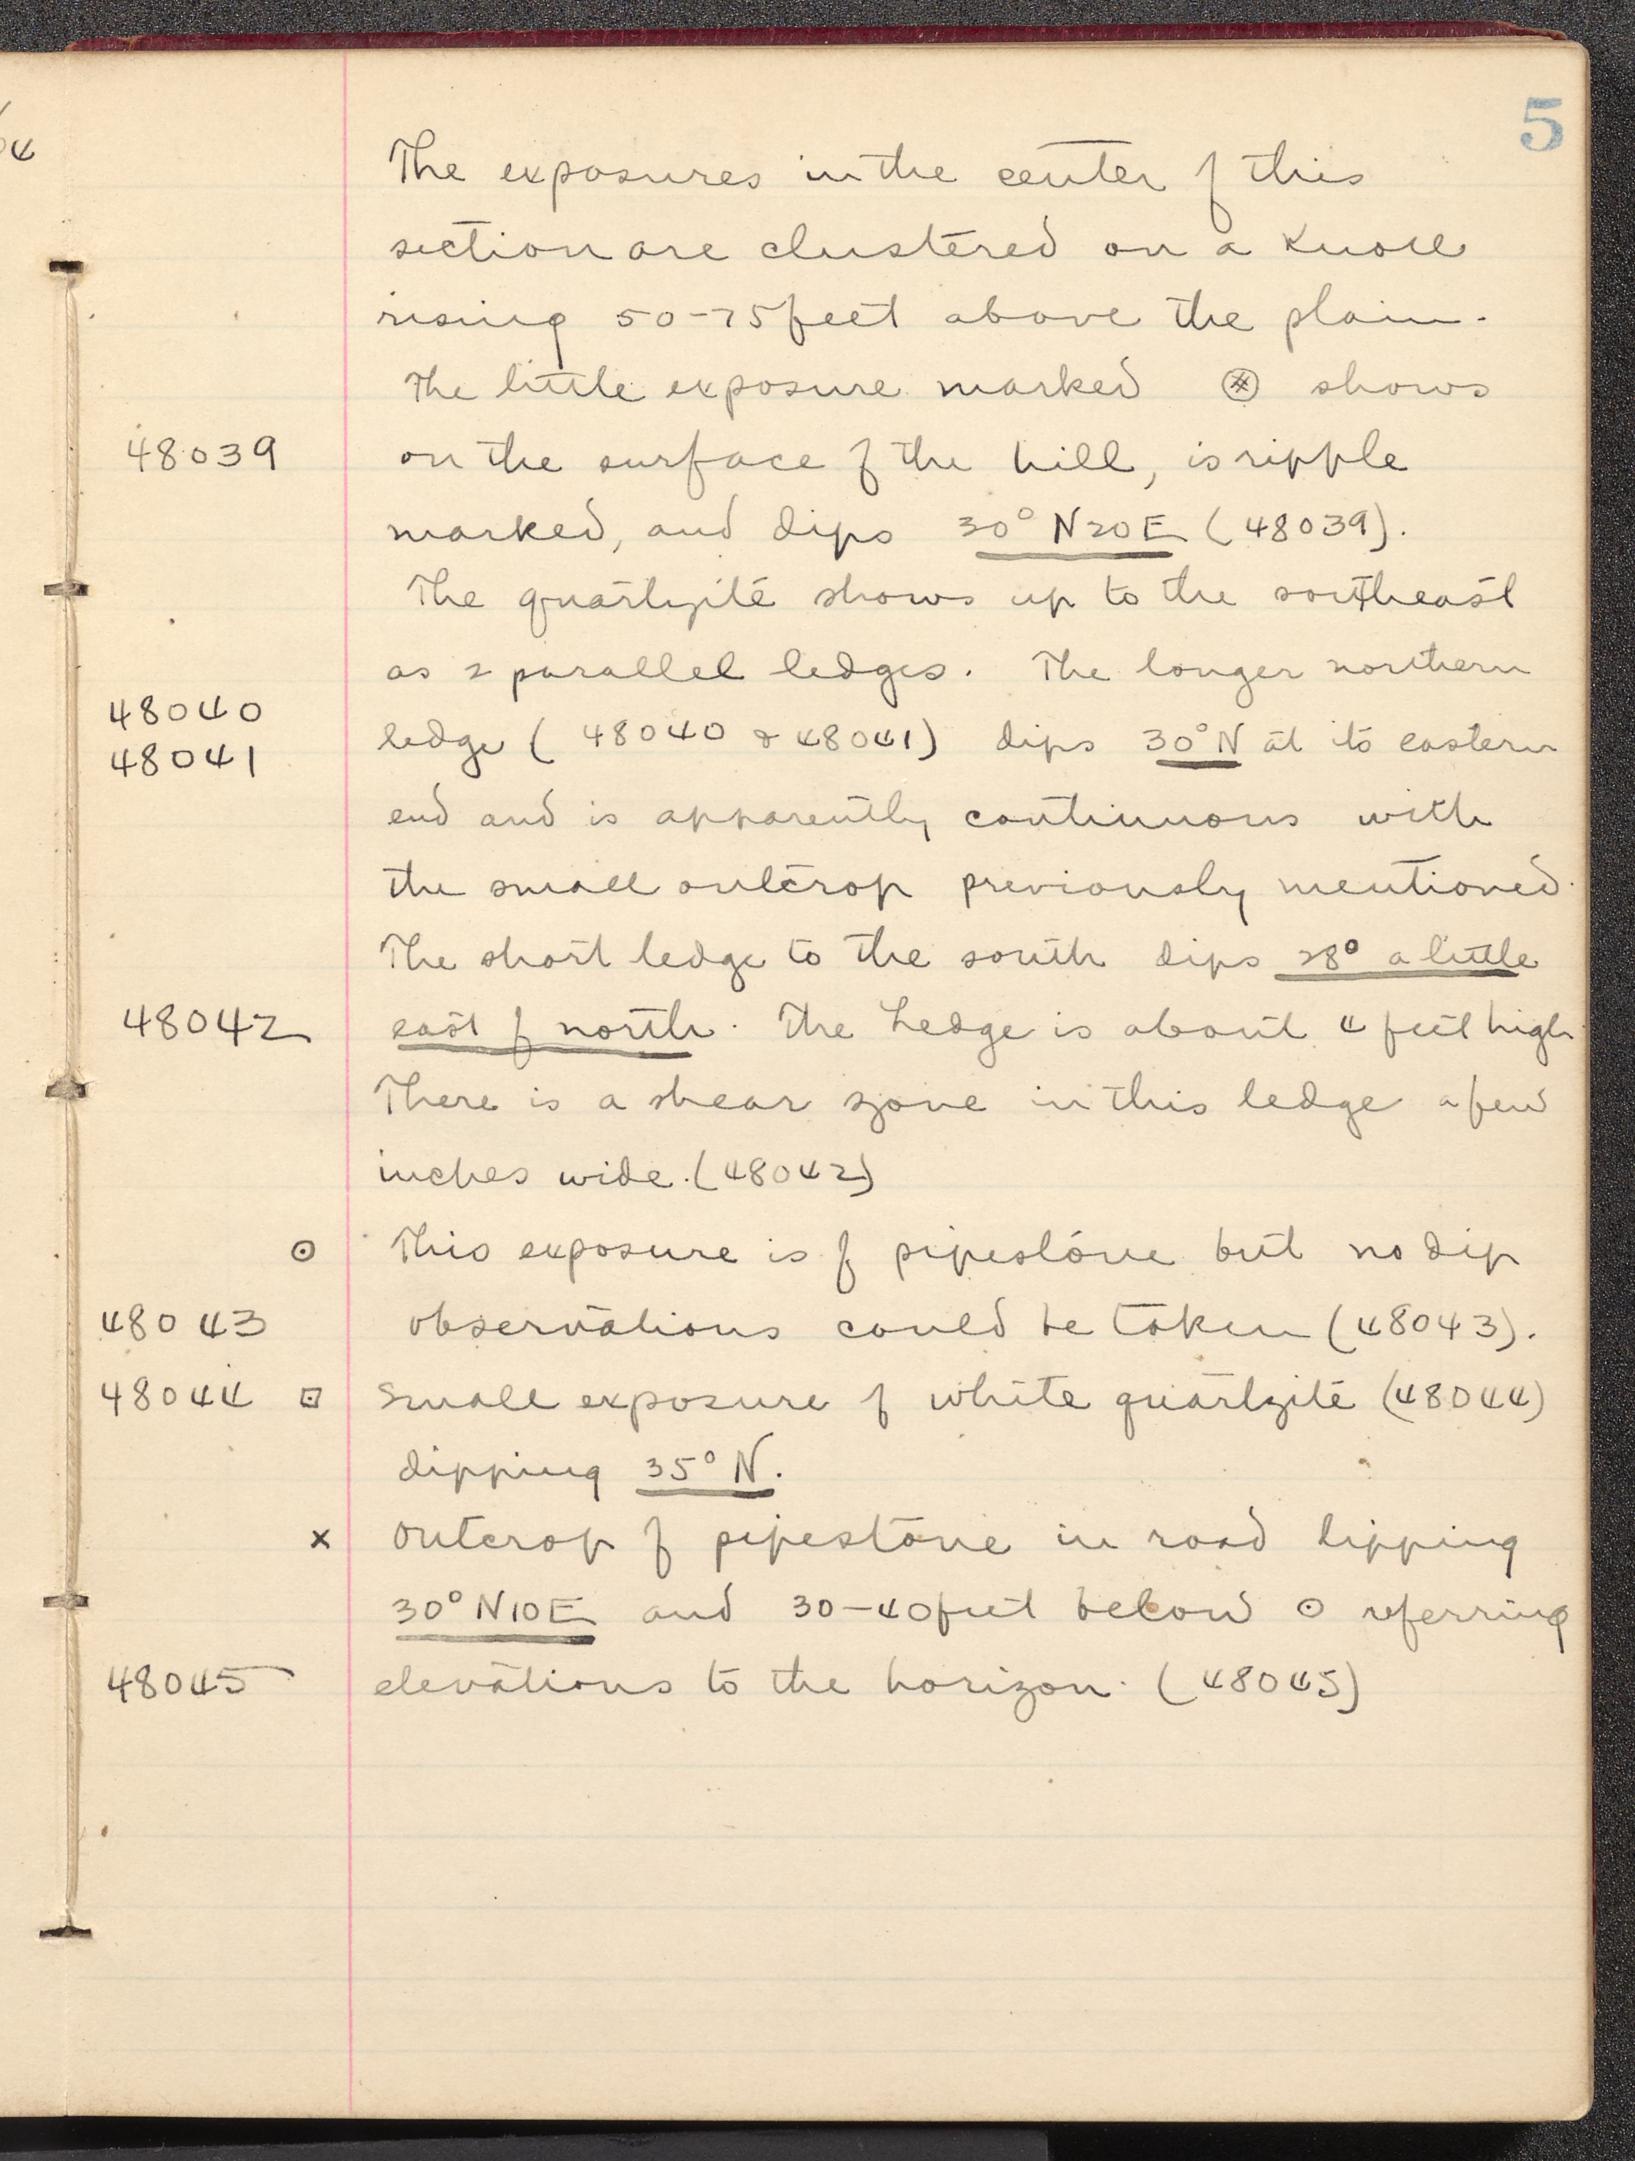 5
The exposures in the center of this
section are clustered on a knoll
rising 50-75 feet above the plain.
The little exposure marked shows
48039 on the surface of the hill, is ripple
marked, and dips 30° N20E (48039).
The quartzite shows up to the southeast
as 2 parallel ledges. The longer northern
48040
48041 ledge (48040 & 48041) dips 30° N at its eastern
end and is apparently continuous with
the small outcrop previously mentioned.
The short ledge to the south dips 28° a little
48042 east of north. The Ledge is about 4 feet high.
There is a shear zone in this ledge a few
inches wide. (48042)
⊙ This exposure is of pipestone but no dip
48043 observations could be taken (48043).
48044 ⊡ Small exposure of white quartzite (48044)
dipping 35° N.
x Outcrop of pipestone in road dipping
30° N10E and 30-40 feet below ⊙ referring
48045 elevations to the horizon. (48045)